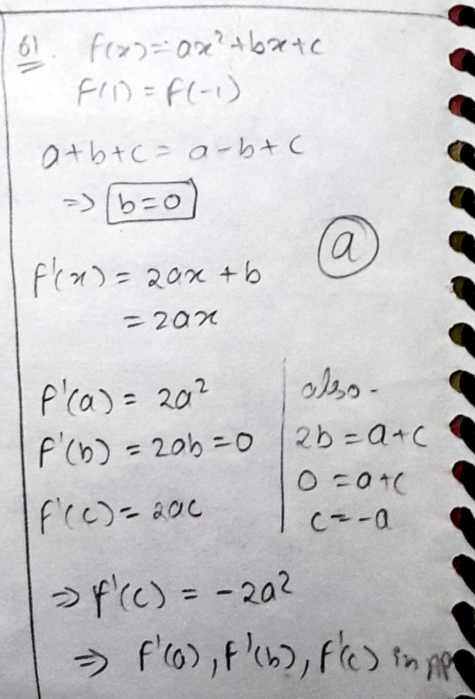 61. f(x) = ax² + bx + c
f(1) = f(-1)
a+b+c = a-b+c
=> b=0
(a)
f'(x) = 2ax + b
= 2ax
f'(a) = 2a²
f'(b) = 2ab = 0
f'(c) = 2ac
also -
2b = a+c
0 = a+c
c = -a
=> f'(c) = -2a²
=> f'(a), f'(b), f'(c) in AP